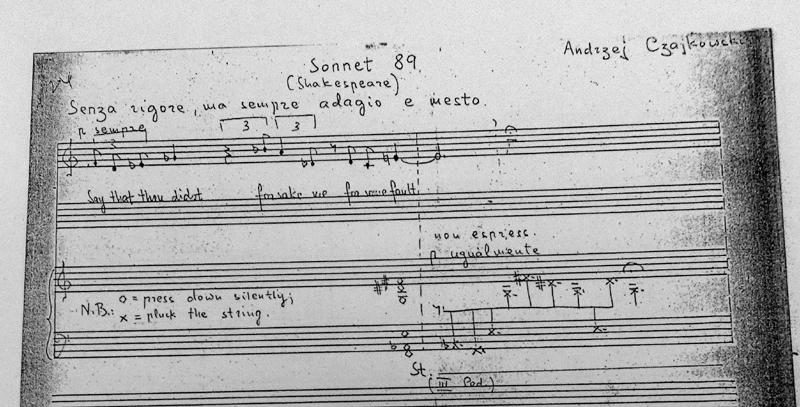 Andrzej Czajkowski
Sonnet 89
(Shakespeare)
Senza rigore, ma sempre adagio e mesto.
p sempre
3
3 3
Say that thou didst forsake me for some fault,
non espress.
p ugualmente
N.B.: o = press down silently;
x = pluck the string.
St.
(III Ped.)